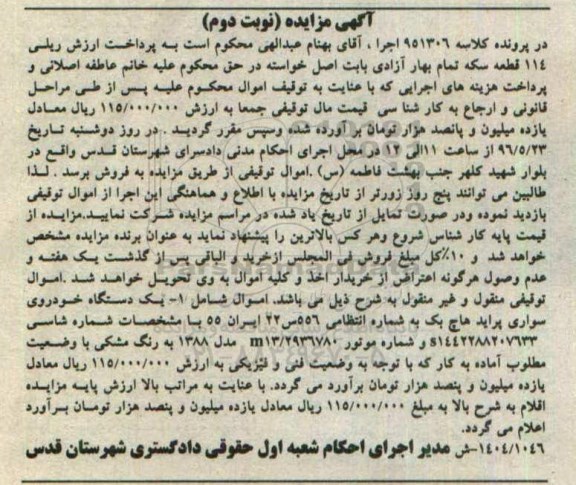 آگهی مزایده (نوبت دوم)
در پرونده کلاسه ۹۵۱۳۰۶ اجرا ، آقای بهنام عبدالهی محکوم است به پرداخت ارزش ریلی
۱۱٤ قطعه سکه تمام بهار آزادی بابت اصل خواسته در حق محکوم علیه خانم عاطفه اصلانی و
پرداخت هزینه های اجرایی که با عنایت به توقیف اموال محکوم علیه پس از طی مراحل
قانونی و ارجاع به کار شنا سی قیمت مال توقیفی جمعا به ارزش ۱۱۵/۰۰۰/۰۰۰ ریال معادل
یازده میلیون و پانصد هزار تومان بر آورده شده وسپس مقرر گردید . در روز دوشنبه تاریخ
۹٦/۵/۲۳ از ساعت ۱۱الی ۱۲ در محل اجرای احکام مدنی دادسرای شهرستان قدس واقع در
بلوار شهید کلهر جنب بهشت فاطمه (س) .اموال توقیفی از طریق مزایده به فروش برسد . لذا
طالبین می توانند پنج روز زورتر از تاریخ مزایده با اطلاع و هماهنگی این اجرا از اموال توقیفی
بازدید نموده ودر صورت تمایل از تاریخ یاد شده در مراسم مزایده شرکت نمایید.مزایده از
قیمت پایه کار شناس شروع وهر کس بالاترین را پیشنهاد نماید به عنوان برنده مزایده مشخص
خواهد شد و ۱۰٪کل مبلغ فروش فی المجلس ازخرید و الباقی پس از گذشت یک هفته و
عدم وصول هرگونه اعتراض از خریدار اخذ و کلیه اموال به وی تحویل خواهد شد .اموال
توقیفی منقول و غیر منقول به شرح ذیل می باشد. اموال شامل ۱- یک دستگاه خودروی
سواری پراید هاچ بک به شماره انتظامی ۵۵٦س۲۲ ایران ۵۵ با مشخصات شماره شاسی
s۱٤٤۲۲۸۸۲۰۷٦۳۳ و شماره موتور m۱۳/۲۹۳٦۷۸۰ مدل ۱۳۸۸ به رنگ مشکی با وضعیت
مطلوب آماده به کار که با توجه به وضعیت فنی و فیزیکی به ارزش ۱۱۵/۰۰۰/۰۰۰ ریال معادل
یازده میلیون و پنصد هزار تومان برآورد می گردد. با عنایت به مراتب بالا ارزش پایه مزایده
اقلام به شرح بالا به مبلغ ۱۱۵/۰۰۰/۰۰۰ ریال معادل یازده میلیون و پنصد هزار تومان برآورد
اعلام می گردد.
۱٤۰٤/۱۰٤٦-ش مدیر اجرای احکام شعبه اول حقوقی دادگستری شهرستان قدس